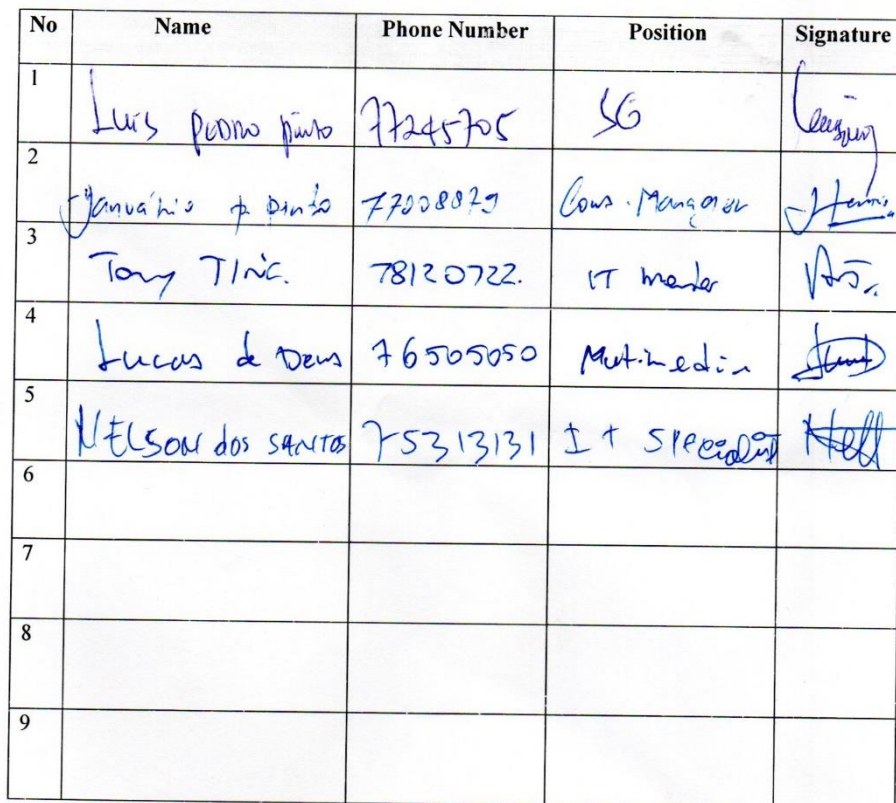 No Name Phone Number Position Signature
1 Luis PEDRO Pinto 77245705 SG
2 Januário p. Pinto 77008879 Cons. Manager
3 Tony TINIC. 78120722. IT member
4 Lucas de Deus 76505050 Mutimedia
5 NELSON dos SANTOS 75313131 IT Specialist
6
7
8
9